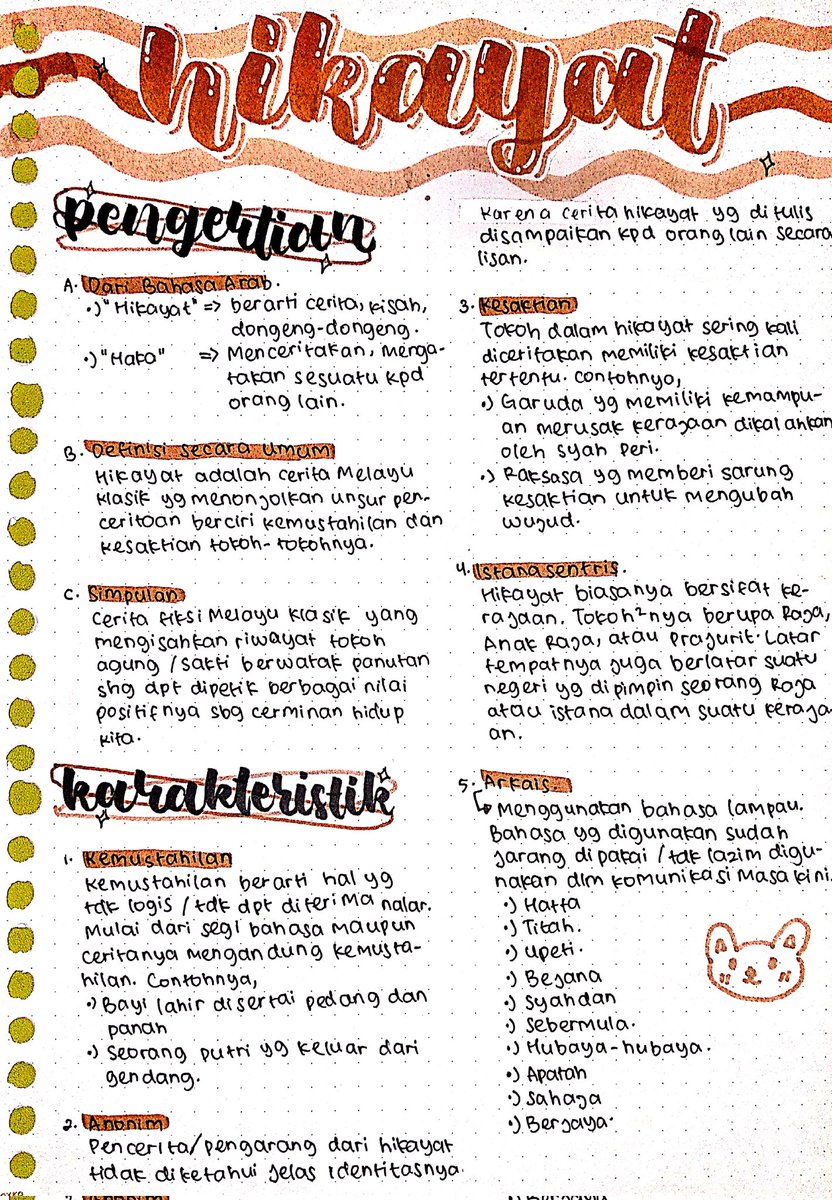 hikayat
pengertian
A. Dari Bahasa Arab.
•) "Hikayat" => berarti cerita, kisah,
dongeng-dongeng.
•) "Haka" => Menceritakan, menga-
takan sesuatu kpd
orang lain.
B. Definisi secara umum
Hikayat adalah cerita Melayu
klasik yg menonjolkan unsur pen-
ceritaan berciri kemustahilan dan
kesaktian tokoh-tokohnya.
C. Simpulan
Cerita fiksi Melayu klasik yang
mengisahkan riwayat tokoh
agung / sakti berwatak panutan
shg dpt dipetik berbagai nilai
positifnya sbg cerminan hidup
kita.
karakteristik
1. Kemustahilan
Kemustahilan berarti hal yg
tdk logis / tdk dpt diterima nalar.
Mulai dari segi bahasa maupun
ceritanya mengandung kemusta-
hilan. Contohnya,
•) Bayi lahir disertai pedang dan
panah
•) Seorang putri yg keluar dari
gendang.
2. Anonim
Pencerita/pengarang dari hikayat
tidak diketahui jelas identitasnya.
Karena cerita hikayat yg ditulis
disampaikan kpd orang lain secara
lisan.
3. Kesaktian
Tokoh dalam hikayat sering kali
diceritakan memiliki kesaktian
tertentu. Contohnya,
•) Garuda yg memiliki kemampu-
an merusak kerajaan dikalahkan
oleh syah peri.
•) Raksasa yg memberi sarung
kesaktian untuk mengubah
wujud.
4. Istana sentris.
Hikayat biasanya bersifat ke-
rajaan. Tokoh²nya berupa Raja,
Anak Raja, atau Prajurit. Latar
tempatnya juga berlatar suatu
negeri yg dipimpin seorang Raja
atau istana dalam suatu keraja-
an.
5. Arkais.
Menggunakan bahasa lampau.
Bahasa yg digunakan sudah
jarang dipakai / tdk lazim digu-
nakan dlm komunikasi masa kini.
•) Hatta
•) Titah.
•) Upeti.
•) Bejana
•) Syahdan
•) Sebermula.
•) Hubaya-hubaya.
•) Apatah
•) Sahaja
•) Berjaya.